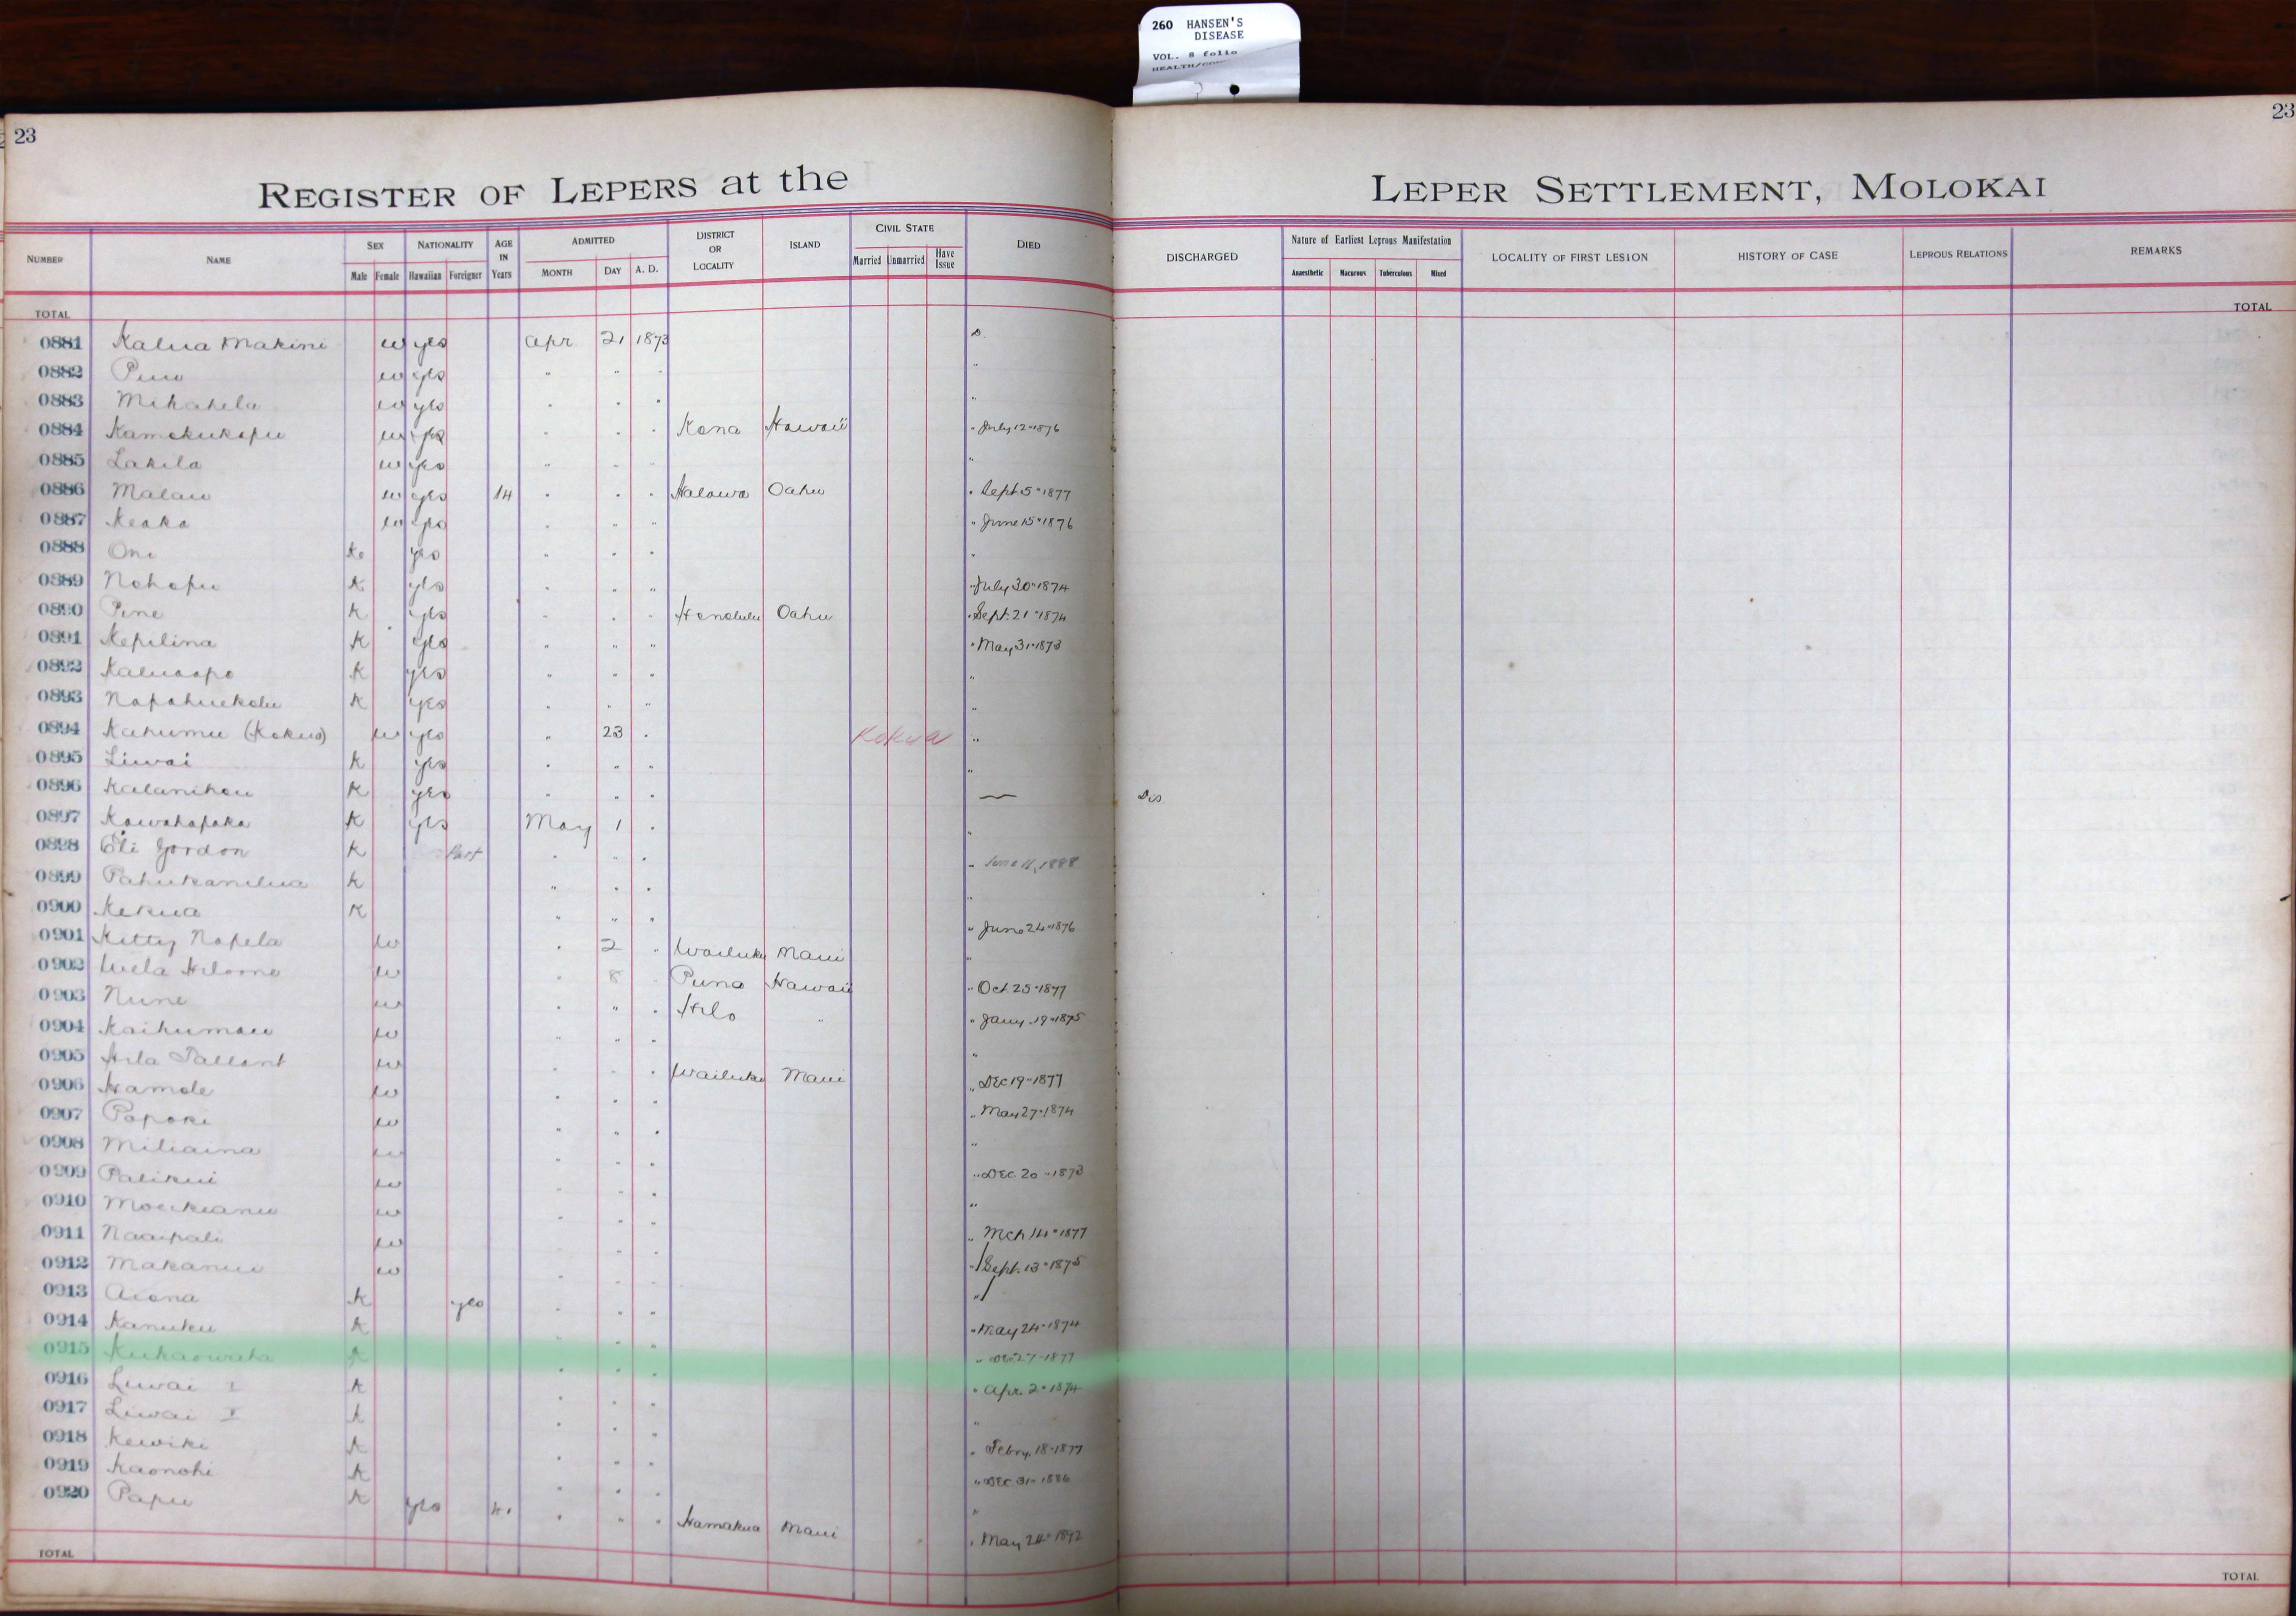 260 HANSEN'S
DISEASE
VOL. 8 folio
23
23
REGISTER OF LEPERS at the LEPER SETTLEMENT, MOLOKAI
NUMBER NAME SEX NATIONALITY AGE IN Years ADMITTED DISTRICT OR LOCALITY ISLAND CIVIL STATE DIED DISCHARGED Nature of Earliest Leprous Manifestation LOCALITY OF FIRST LESION HISTORY OF CASE LEPROUS RELATIONS REMARKS
Male Female Hawaiian Foreigner MONTH DAY A. D. Married Unmarried Have Issue Anaesthetic Macurous Tuberculous Mixed
TOTAL TOTAL
0881 Kalua Makini w yes Apr 21 1873 D.
0882 w yes " " " "
0883 Mikahela w yes " " " "
0884 Kamokukapu w yes " " " Kona Hawaii " July 12" 1876
0885 Lakila w yes " " " "
0886 Malau w yes 14 " " " Halawa Oahu " Sept. 5" 1877
0887 Keaka w yes " " " " June 15" 1876
0888 Oni K yes " " " "
0889 Nohopu K yes " " " " July 30" 1874
0890 Pine K yes " " " Honolulu Oahu " Sept. 21" 1874
0891 Kepilina K yes " " " " May 31" 1873
0892 K yes " " " "
0893 Napahuekolu K yes " " " "
0894 Kahumu (Kokua) w yes " 23 " Kokua "
0895 Liwai K yes " " " "
0896 Kalanihou K yes " " " — Dis
0897 Kawahapaka K yes May 1 " "
0898 Eli Gordon K Part " " " " June 11, 1888
0899 Pahukanilua K " " " "
0900 Kekua K " " " " June 24" 1876
0901 Kitty Napela w " 2 " Wailuku Maui "
0902 w " 8 " Puna Hawaii " Oct. 25" 1877
0903 Nune w " " " Hilo " " Jany. 19" 1875
0904 Kaihumau w " " " "
0905 Hila Tallant w " " " Wailuku Maui " Dec 19" 1877
0906 Kamole w " " " " May 27" 1874
0907 Papoki w " " " "
0908 Miliaina w " " " " Dec. 20" 1873
0909 Palikui w " " " "
0910 w " " " " Mch 14" 1877
0911 Naaipali w " " " " Sept. 13" 1875
0912 Makanui w " " " "
0913 Aiona K yes " " " " May 24" 1874
0914 Kanuku K " " " " Dec 27" 1877
0915 K " " " " Apr. 2" 1874
0916 Liwai I K " " " "
0917 Liwai K " " " " Febry. 18" 1877
0918 Kewiki K " " " " Dec. 31" 1886
0919 Kaonohi K " " " "
0920 Papu K yes " " " Hamakua Maui " May 24" 1892
TOTAL TOTAL